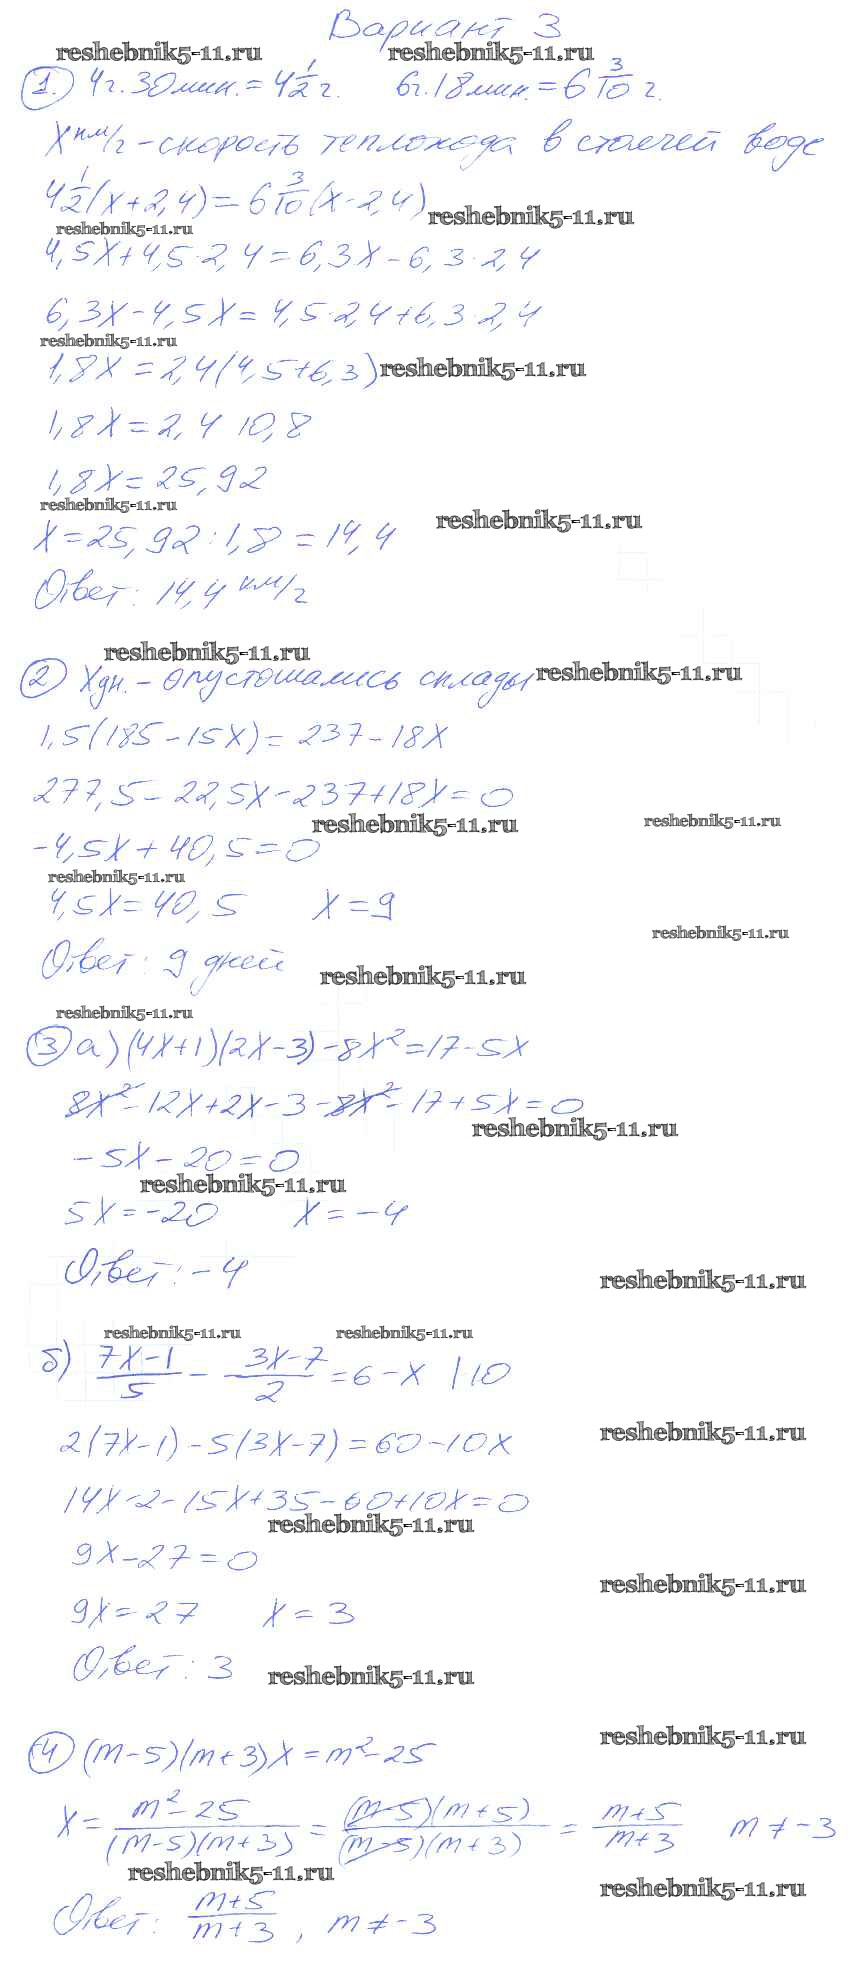 Вариант 3
reshebnik5-11.ru reshebnik5-11.ru
1. 4г. 30мин. = 4 1/2 г. 6г. 18мин. = 6 3/10 г.
X км/г - скорость теплохода в стоячей воде
4 1/2 (x + 2,4) = 6 3/10 (x - 2,4)
reshebnik5-11.ru
reshebnik5-11.ru
4,5X + 4,5 · 2,4 = 6,3X - 6,3 · 2,4
6,3X - 4,5X = 4,5 · 2,4 + 6,3 · 2,4
reshebnik5-11.ru
1,8X = 2,4 (4,5 + 6,3)
reshebnik5-11.ru
1,8X = 2,4 10,8
1,8X = 25,92
reshebnik5-11.ru
reshebnik5-11.ru
X = 25,92 : 1,8 = 14,4
Ответ: 14,4 км/г
reshebnik5-11.ru
2 Xдн. - опустошались склады
reshebnik5-11.ru
1,5(185 - 15X) = 237 - 18X
277,5 - 22,5X - 237 + 18X = 0
reshebnik5-11.ru reshebnik5-11.ru
-4,5X + 40,5 = 0
reshebnik5-11.ru
4,5X = 40,5 X = 9
reshebnik5-11.ru
Ответ: 9 дней
reshebnik5-11.ru
reshebnik5-11.ru
3 а) (4X+1)(2X-3) - 8X² = 17 - 5X
8X² - 12X + 2X - 3 - 8X² - 17 + 5X = 0
reshebnik5-11.ru
-5X - 20 = 0
reshebnik5-11.ru
5X = -20 X = -4
Ответ: -4
reshebnik5-11.ru
reshebnik5-11.ru reshebnik5-11.ru
б) (7X-1)/5 - (3X-7)/2 = 6 - X | 10
reshebnik5-11.ru
2(7X-1) - 5(3X-7) = 60 - 10X
14X - 2 - 15X + 35 - 60 + 10X = 0
reshebnik5-11.ru
9X - 27 = 0
reshebnik5-11.ru
9X = 27 X = 3
Ответ: 3
reshebnik5-11.ru
reshebnik5-11.ru
4 (m-5)(m+3)X = m² - 25
X = (m² - 25)/((m-5)(m+3)) = ((m-5)(m+5))/((m-5)(m+3)) = (m+5)/(m+3) m ≠ -3
reshebnik5-11.ru
reshebnik5-11.ru
Ответ: (m+5)/(m+3), m ≠ -3